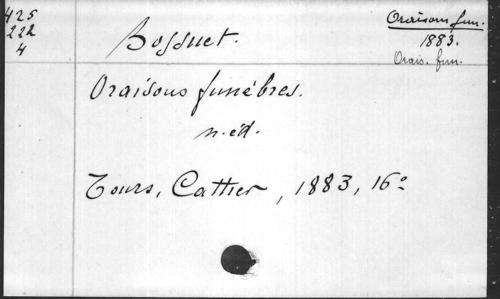 425
222
4
Oraisons fun.
1883.
Orais. fun.
Bossuet.
Oraisons funèbres.
n. éd.
Tours, Cattier, 1883, 16°